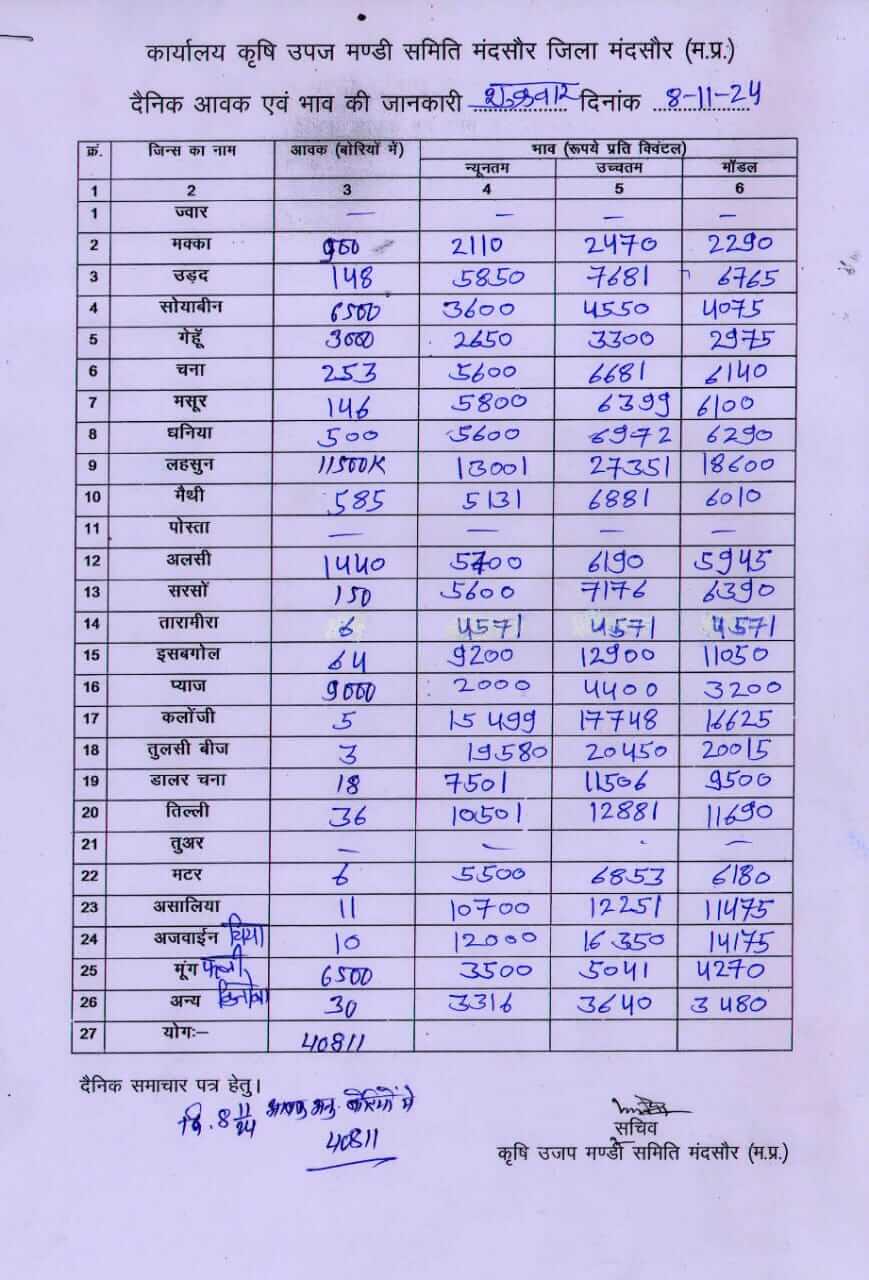 कार्यालय कृषि उपज मण्डी समिति मंदसौर जिला मंदसौर (म.प्र.)
दैनिक आवक एवं भाव की जानकारी शुक्रवार दिनांक 8-11-24
क्रं. जिन्स का नाम आवक (बोरियों में) भाव (रूपये प्रति क्विंटल)
न्यूनतम उच्चतम मॉडल
1 2 3 4 5 6
1 ज्वार — — — —
2 मक्का 900 2110 2470 2290
3 उड़द 148 5850 7681 6765
4 सोयाबीन 6500 3600 4550 4075
5 गेहूँ 3000 2650 3300 2975
6 चना 253 5600 6681 6140
7 मसूर 146 5800 6399 6100
8 धनिया 500 5600 6972 6290
9 लहसुन 11500K 13001 27351 18600
10 मैथी 585 5131 6881 6010
11 पोस्ता — — — —
12 अलसी 1440 5700 6190 5945
13 सरसों 150 5600 7176 6390
14 तारामीरा 6 4571 4571 4571
15 इसबगोल 64 9200 12900 11050
16 प्याज 9000 2000 4400 3200
17 कलोंजी 5 15499 17748 16625
18 तुलसी बीज 3 19580 20450 20015
19 डालर चना 18 7501 11506 9500
20 तिल्ली 36 10501 12881 11690
21 तुअर — — - —
22 मटर 6 5500 6853 6180
23 असालिया 11 10700 12251 11475
24 अजवाईन चिया 10 12000 16350 14175
25 मूंग फली 6500 3500 5041 4270
26 अन्य 30 3316 3640 3480
27 योगः— 40811
दैनिक समाचार पत्र हेतु।
दि. 8 11/24 आवक अनु. बोरियों में
40811
सचिव
कृषि उजप मण्डी समिति मंदसौर (म.प्र.)